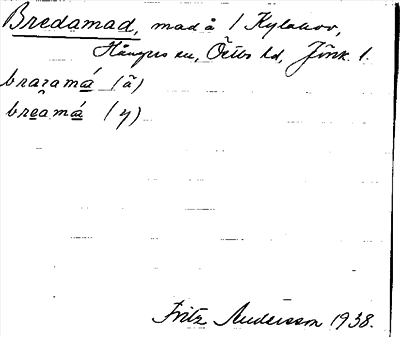 Bredamad, mad å 1 Kylahov,
Hångers sn, Östbo hd, Jönk. l.
brazamá (ä)
breamá (y)
Fritz Andersson 1938.